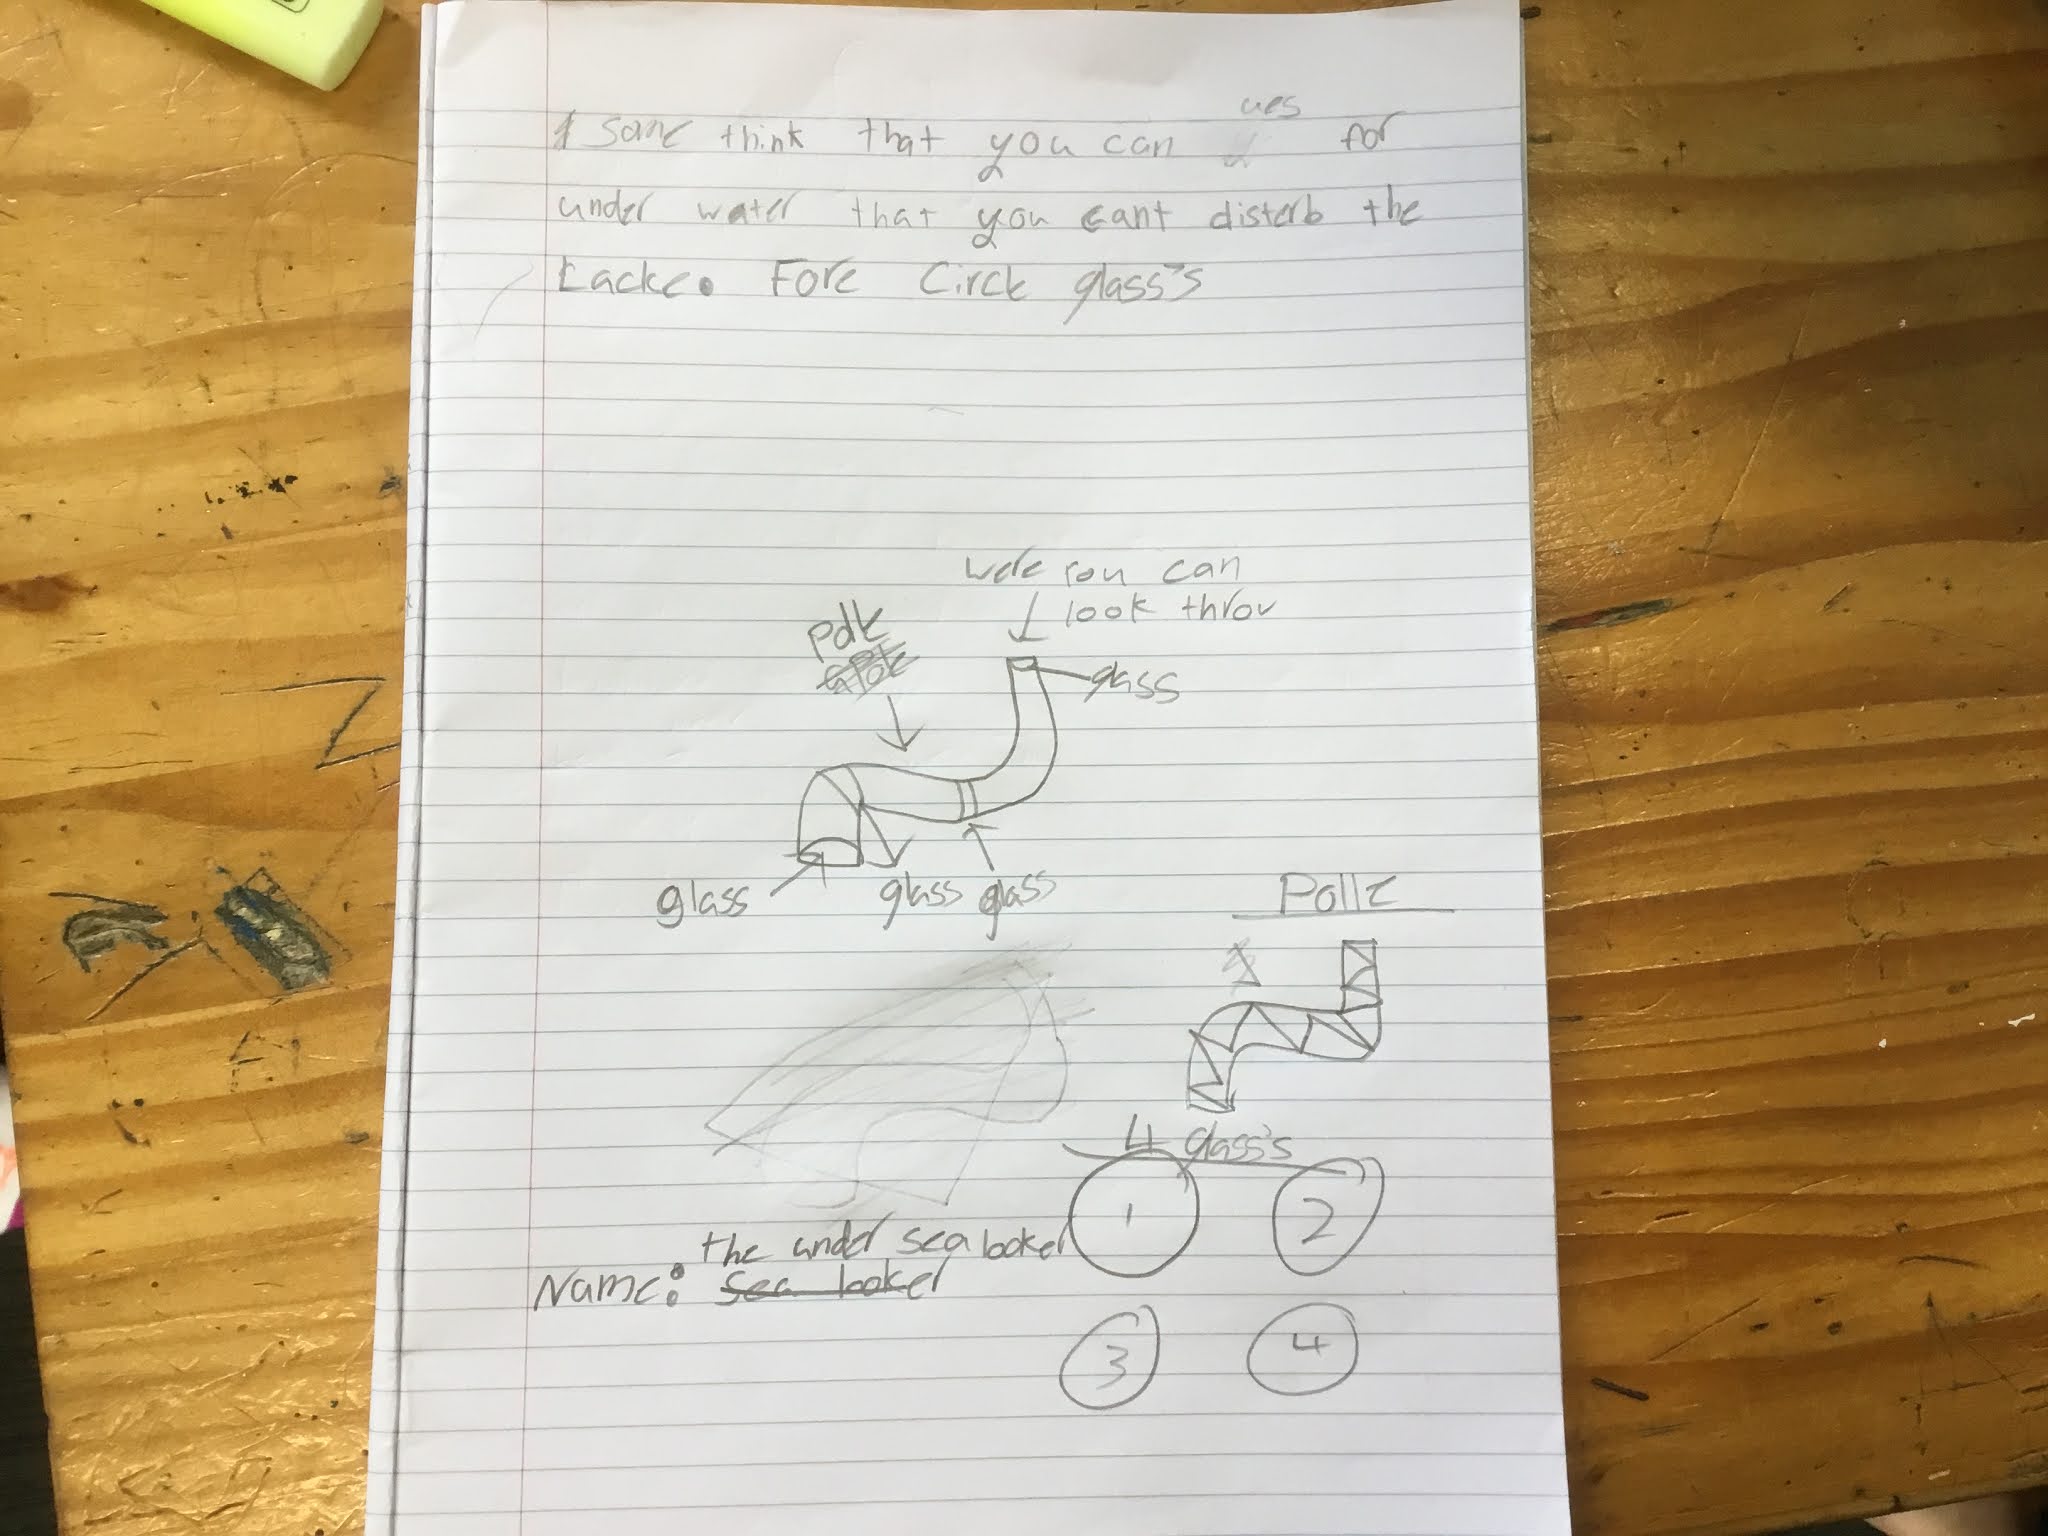 1 some think that you can ues for
under water that you cant disterb the
Lacke. Fore Circle glass's
were you can
look throu
Pole
glass
glass
glass glass
Polle
4 glass's
1
2
the under sea looker
Name: sea looker
3
4